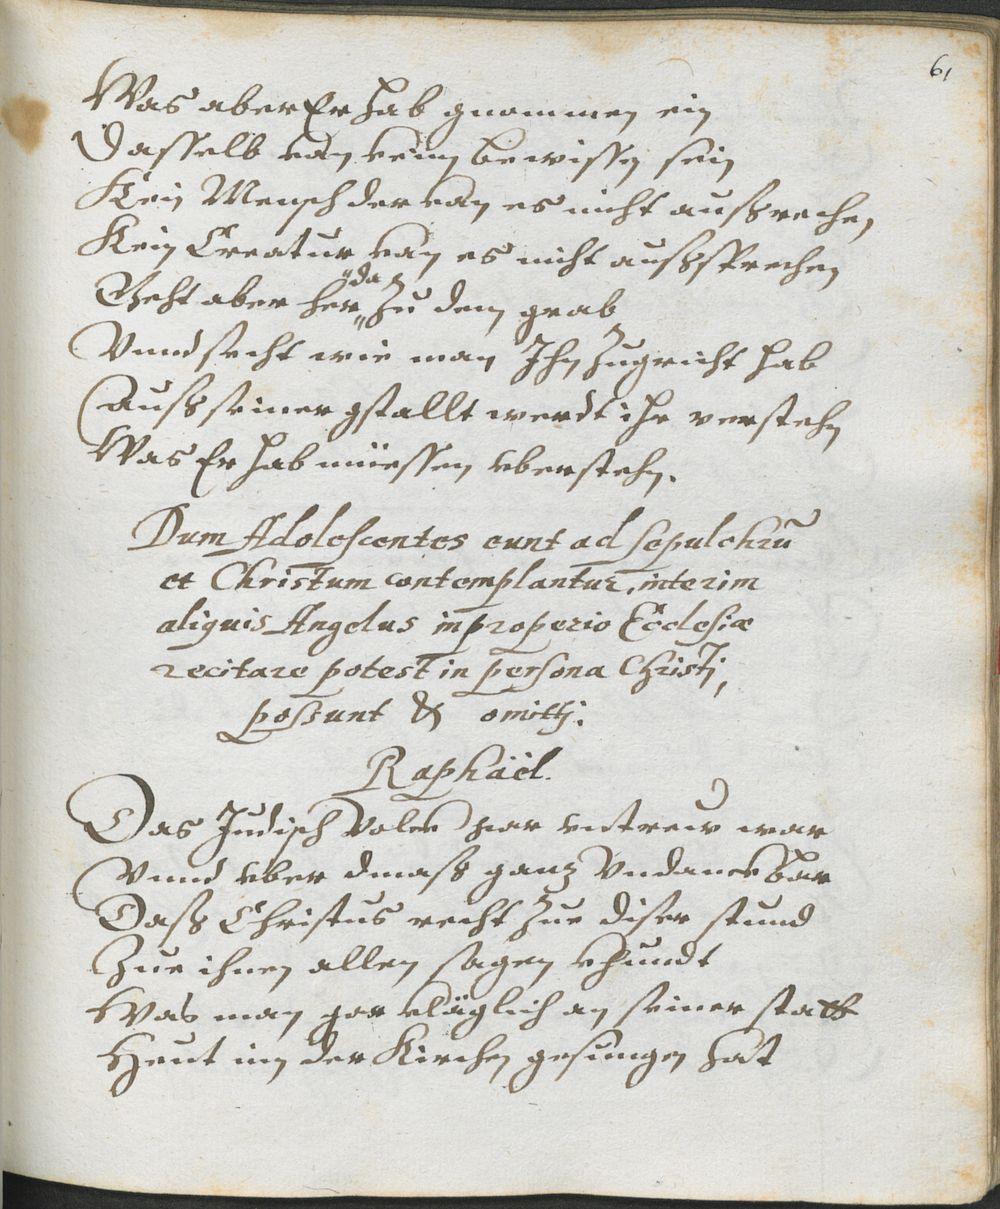 61
Was aber Er hab gnommen ein
Dasselb kan kein bewissen sein
Kein Mensch der kan es nicht außrechen,
Kein Creatur kan es nicht außsprechen
Geht aber her da zu dem grab
Vnnd secht wie man Ihn zugricht hab
Auß seiner gstallt werdt ihr verstehn
Was Er hab müessen vberstehn.
Dum Adolescentes eunt ad sepulchrū
et Christum contemplantur, interim
aliquis Angelus improperio Ecclesiæ
recitare potest in persona Christj,
possunt & omittj.
Raphaël.
Das Judisch Volck zwar vntrew war
Vnnd vber dmaß ganz Vndanckbar
Daß Christus recht zue diser stund
Zue ihnen allen sagen khundt
Was man gar kläglich an seiner statt
Heut inn der Kirchen gesungen hat